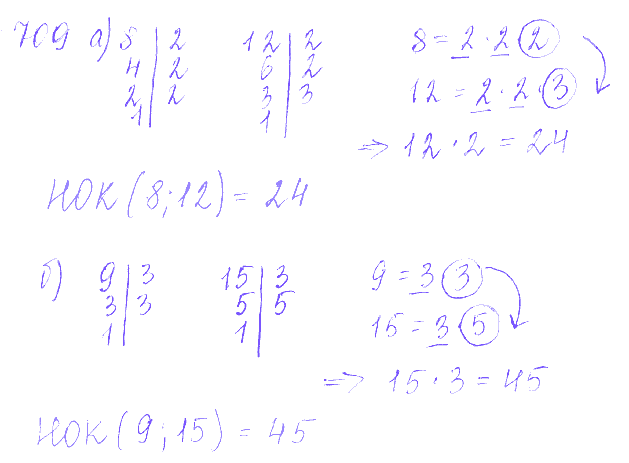 709 а) 8 | 2   12 | 2   8 = 2 · 2 · 2
4 | 2   6 | 2   12 = 2 · 2 · 3
2 | 2   3 | 3
1 |   1 |   => 12 · 2 = 24
НОК (8; 12) = 24
б) 9 | 3   15 | 3   9 = 3 · 3
3 | 3   5 | 5   15 = 3 · 5
1 |   1 |
=> 15 · 3 = 45
НОК (9; 15) = 45